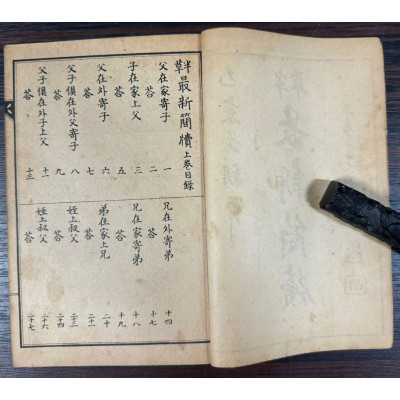 半草最新簡牘上卷目錄
父在家寄子 一
答 二
子在家上父 三
答 五
父在外寄子 六
答 七
父子俱在外父寄子 八
答 九
父子俱在外子上父 十一
答 十三
兄在外寄弟 十四
答 十七
兄在家寄弟 十八
答 十九
弟在家上兄 二十
答 二十一
姪上叔父 二十三
答 二十四
姪上叔父 二十六
答 二十七